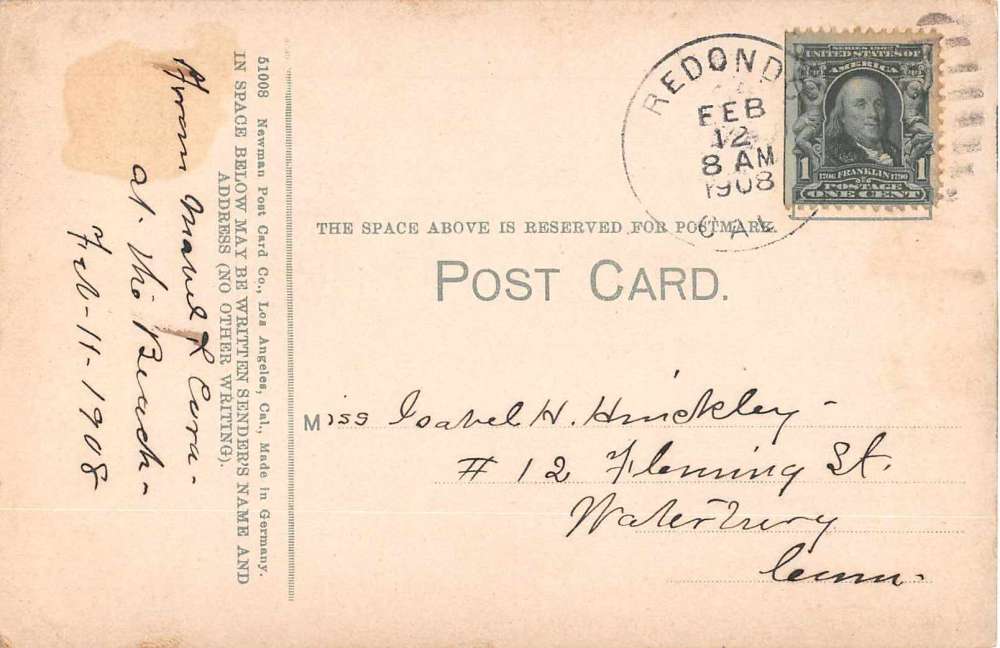 REDONDO
FEB
12
8 AM
1908
CAL
SERIES 1902
UNITED STATES OF
AMERICA
1 1
1706 FRANKLIN 1790
POSTAGE
ONE CENT
THE SPACE ABOVE IS RESERVED FOR POSTMARK.
POST CARD.
Miss Isabel H. Hinckley-
# 12 Fleming St.
Waterbury
Conn.
51008 Newman Post Card Co., Los Angeles, Cal., Made in Germany.
IN SPACE BELOW MAY BE WRITTEN SENDER'S NAME AND
ADDRESS (NO OTHER WRITING).
From Mabel & Cora-
at the Beach-
Feb-11-1908